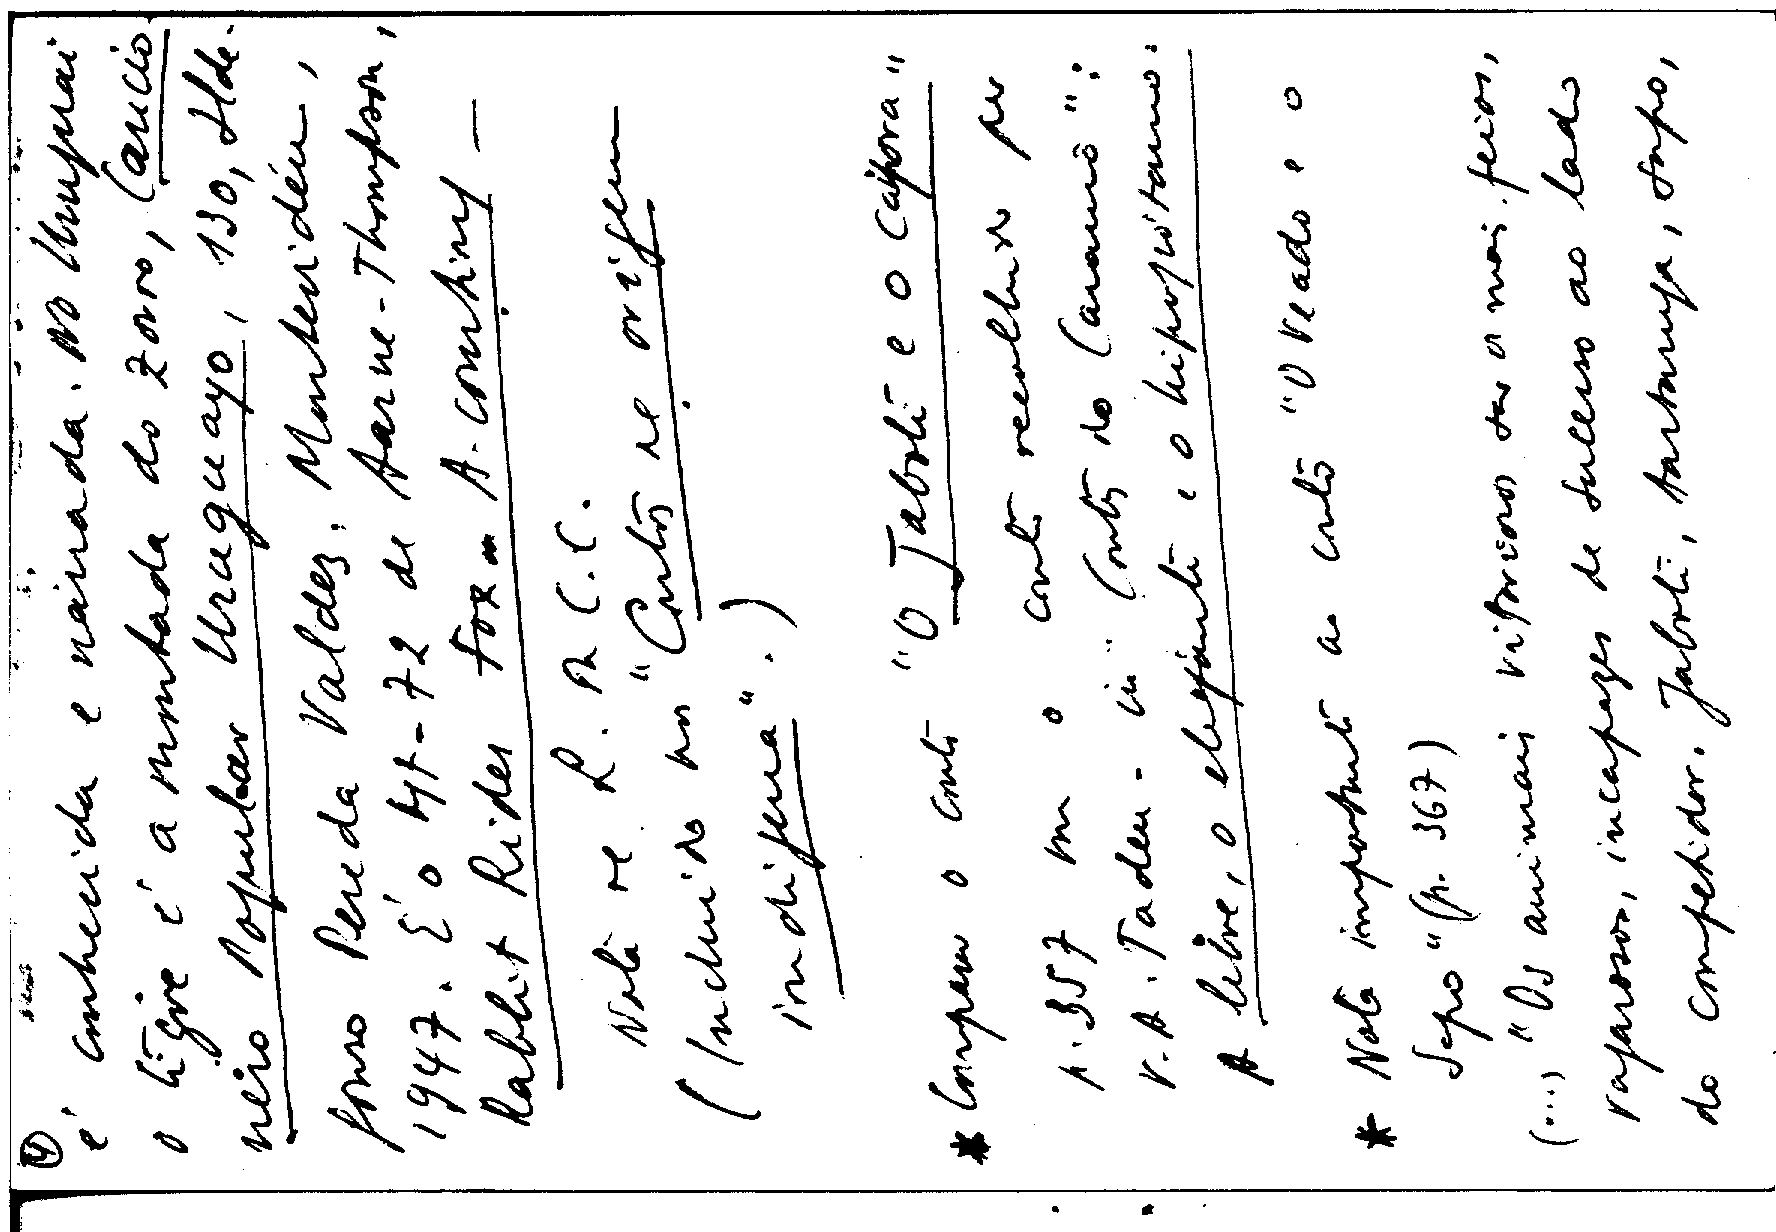 ④
é conhecida e narrada. No Uruguai
o tigre é a montada do zorro, Cancio
neiro Popular Uruguayo, 130, Ilde-
fonso Pereda Valdez, Montevidéu,
1947. É o Mt-72 de Aarne-Thompson,
Rabbit Rides Fox A-courting —
Nota de L. da C.C.
(Incluido em "Contos de origem
indígena".)
* Comparar o conto "O Jaboti e o Caipora"
p. 357 com o conto recolhido por
V.A. Tadeu - in: Contos do Caramô":
A lebre, o elefante e o hipopótamo.
* Nota importante ao conto "O Veado e o
Sapo" (p. 367)
(...) "Os animais vitoriosos são os mais feios,
vagarosos, incapazes de sucesso ao lado
do competidor. Jaboti, tartaruga, sapo,